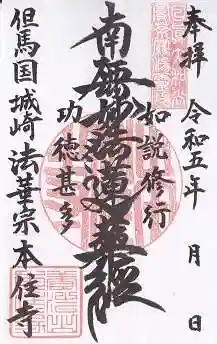 奉拝
令和五年 月 日
如説修行
南無妙法蓮華経
功徳甚多
但馬国城崎法華宗本住寺